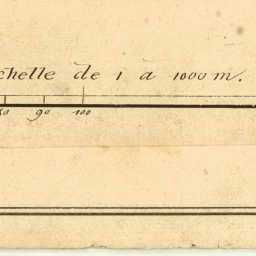 chelle de 1 a 1000 m.
80 90 100